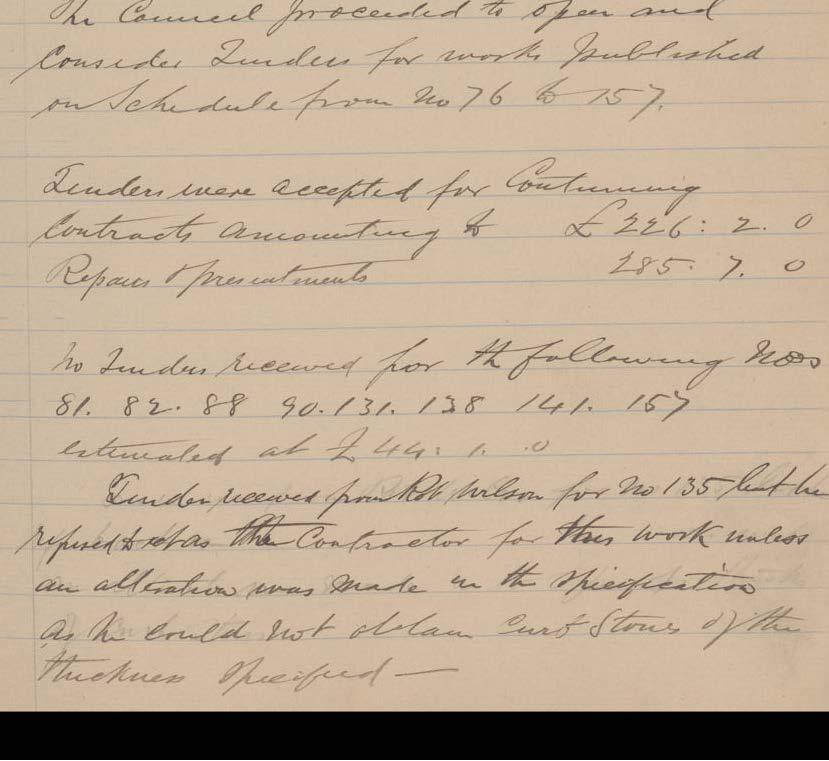 The Council proceeded to open and
consider Tenders for works published
on Schedule from No 76 to 157.
Tenders were accepted for Continuing
Contracts amounting to £226: 2. 0
Repairs & presentments 285. 7. 0
No Tenders received for the following Nos
81. 82. 88 90. 131. 138 141. 157
estimated at £44: 1. 0
Tender received from Robt Wilson for No 135 but he
refused to act as the Contractor for this work unless
an alteration was made in the specification
as he could not obtain Curb Stones of the
thickness specified —